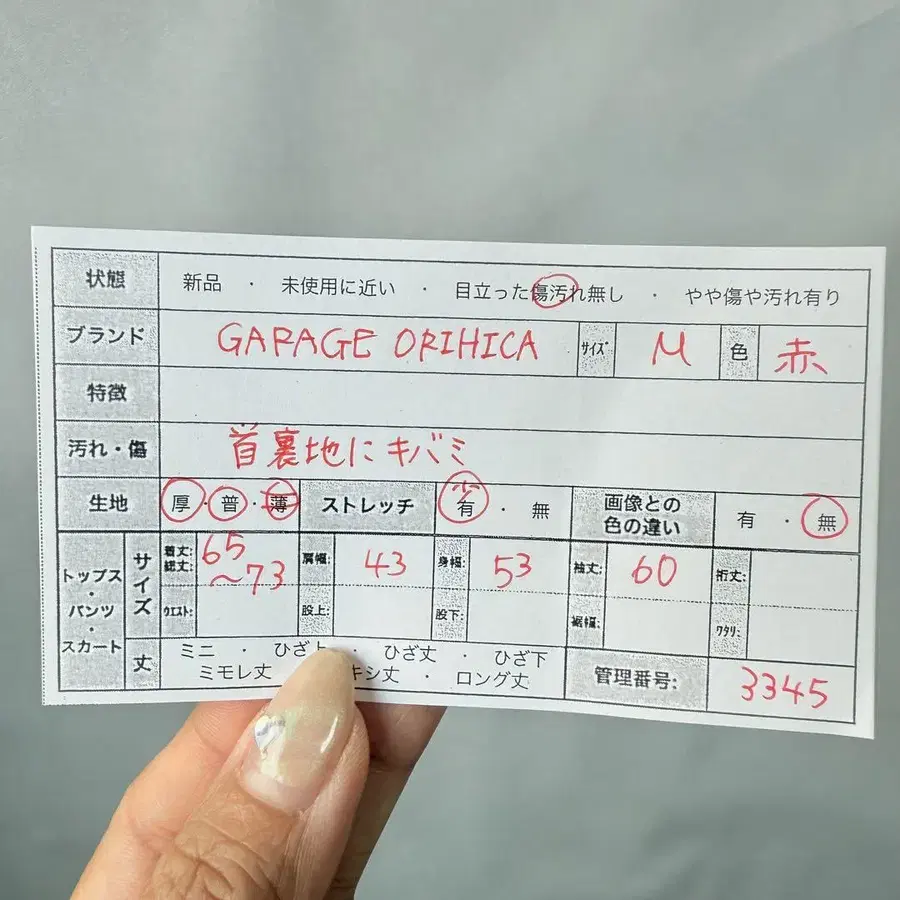 状態 新品 ・ 未使用に近い ・ 目立った傷汚れ無し ・ やや傷や汚れ有り
ブランド GARAGE ORIHICA サイズ M 色 赤
特徴
汚れ・傷 首裏地にキバミ
生地 厚・普・薄 ストレッチ 少 有 ・ 無 画像との色の違い 有 ・ 無
トップス・パンツ・スカート サイズ 着丈: 総丈: 65〜73 肩幅: 43 身幅: 53 袖丈: 60 裄丈:
ウエスト: 股上: 股下: 裾幅: ワタリ:
丈 ミニ ・ ひざ上 ・ ひざ丈 ・ ひざ下
ミモレ丈 キシ丈 ・ ロング丈 管理番号: 3345